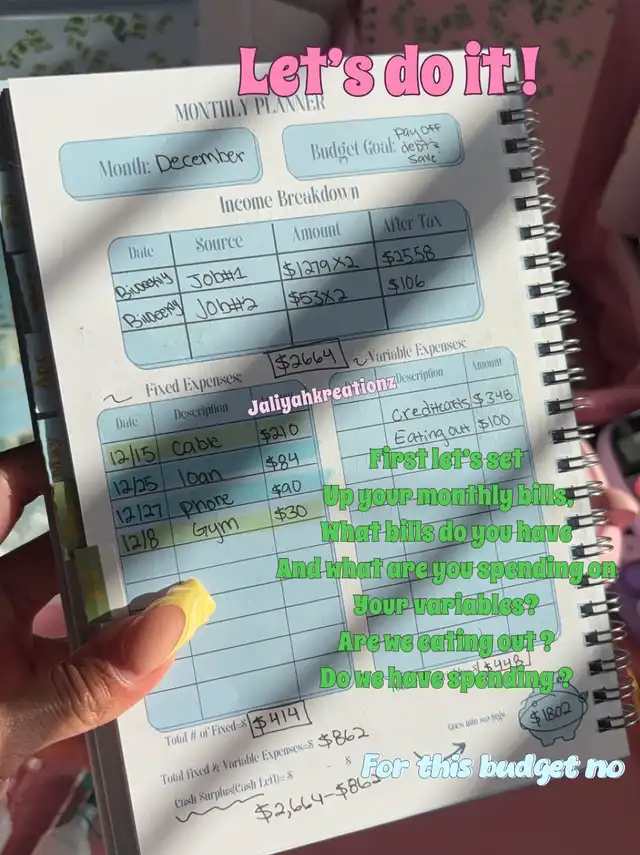 Let's do it!
MONTHLY PLANNER
Month: December
Budget Goal: Pay off
debt &
save
Income Breakdown
Date Source Amount After Tax
Biweekly Job#1 $1279x2 $2558
Biweekly Job#2 $53x2 $106
$2664
Fixed Expenses:
Variable Expenses:
Jaliyahkreationz
Date Description
12/15 Cable $210
12/25 loan $84
12/27 Phone $90
12/8 Gym $30
Description Amount
Credit cards $348
Eating out $100
First let's set
Up your monthly bills,
What bills do you have
And what are you spending on
Your variables?
Are we eating out?
Do we have spending?
$448
Total # of Fixed=$ $414
Total Fixed & Variable Expenses=$ $862
Goes into savings
$1802
Cash Surplus(Cash Left)= $ - $
$2,664-$862
For this budget no